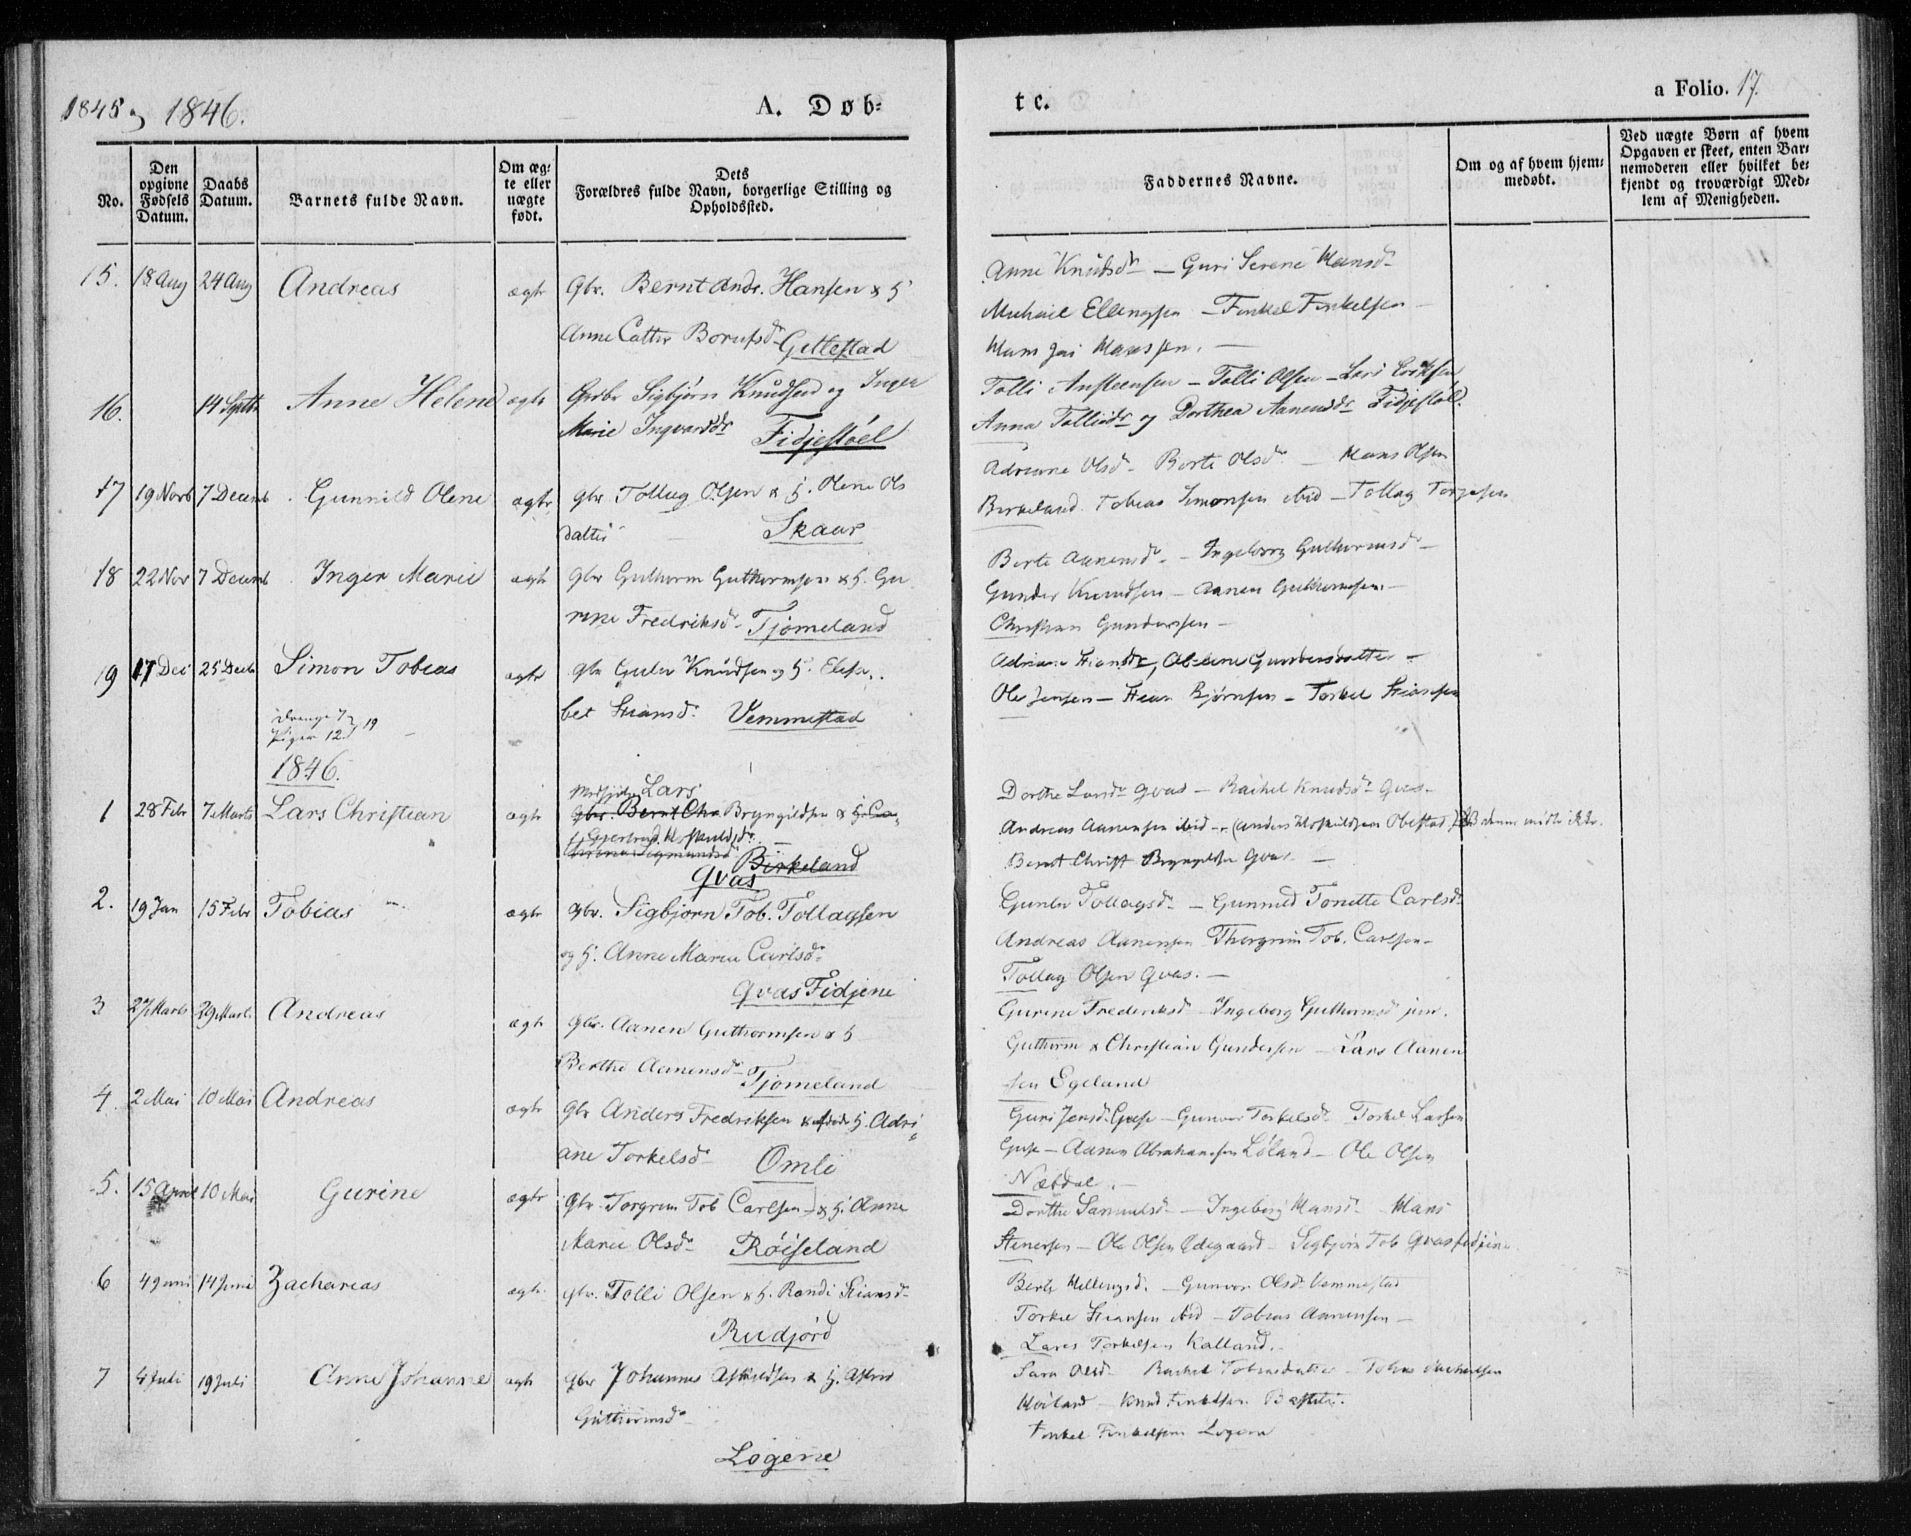 1845 og 1846.
A. Døb-
No.
Den opgivne Fødsels Datum.
Daabs Datum.
Barnets fulde Navn.
Om ægte eller uægte født.
Dets Forældres fulde Navn, borgerlige Stilling og Opholdssted.
15. 18 Aug 24 Aug Andreas ægte Gbr. Bernt Andr. Hansen & H
Anne Cathr Gitlestad
16. 14 Septb Anne Helene ægte Sigbjørn Knudsen og Inger
Marie Ingvardsdr Fidjestøel
17 19 Novb 7 Decemb Gunnild Olene ægte Gbr Tollag Olsen & H. Olene Ols
datter Skaar
18 22 Nov 7 Decemb Inger Marie ægte Gbr Guthorm Guthormsen & H. Gu
rine Fredriksdr Tjomeland
19 17 Dec 25 Decb Simon Tobias ægte Gbr Knudsen og H. Elisa
bet Stiansdr Vemmestad
Drenge 7
Piger 12 19
1846.
Lars
1 28 Febr 7 Marts Lars Christian ægte Gbr. Bernt Chr Bryngildsen & H.
Birkeland
Qvas
2. 19 Jan 15 Febr Tobias ægte Gbr. Sigbjørn Tob. Tollagsen
og H. Anne Marie Carlsdr
Qvas Fidjene
3 27 Marts 29 Marts Andreas ægte Gbr. Aanen Guthormsen & H
Berthe Aanensdr Tjomeland
4. 2 Mai 10 Mai Andreas ægte Gbr Anders Fredriksen & H. Adri
ane Torkelsdr Omli
5. 15 April 10 Mai Gurine ægte Gbr Torgrim Tob Carlsen & H. Anne
Marie Olsdr Røiseland
6 4 Juni 14 Juni Zacharias ægte Gbr. Tolli Olsen & H. Randi Stiansdr
Rudjord
7 4 Juli 19 Juli Anne Johanne ægte Gbr Johannes Askildsen & H. Astrid
Guthormsdr
Løgene
te.
a Folio. 17.
Faddernes Navne.
Om og af hvem hjemmedøbt.
Ved uægte Børn af hvem Opgaven er skeet, enten Barnemoderen eller hvilket bekjendt og troværdigt Medlem af Menigheden.
Anne Knudsdr — Guri Serene Hansdr
Michael Ellingsen — Finkel Finkelsen —
Hans Hansen. —
Tolli Ansteensen — Tolli Olsen — Lars
Anna Tollisdr og Dorthea Aanensdr Fidjestøl.
Adriane Olsd — Berte Olsdr — Hans Olsen
Birkeland. Tobias Simonsen ibid — Tollag Torjesen
Berte Aanensdr — Ingeborg Guthormsdr —
Gunder Knudsen — Aanen Guthormsen —
Christian Gundersen —
Adriane Stiansdr, Gundersdatter —
Ole Jensen — Stian Bjørnsen — Torkel Stiansen
Dorthe Qvas — Rachel Knudsdr Qvas —
Andreas Aanensen ibid — (Anders Obestad)
Bernt Christ Bryngelsen Qvas —
Tollagsdr — Gunnild Tonette Carlsdr
Andreas Aanensen Thorgrim Tob. Carlsen —
Tollag Olsen Qvas. —
Gurine Frederiksd — Ingeborg Guthormsd jun.
Guthorm & Christian Gundersen — Lars Aanen
sen Egeland
Guri Jensdr — Gunvor Torkelsdr Torkel Larsen
Aanen Abrahamsen Løland — Ole Olsen
Næsdal. —
Dorthe Samuelsdr — Ingeborg Hansdr Hans
Stenersen — Ole Olsen Ødegaard — Sigbjørn Tob Qvasfidjene
Gunvor Olsdr Vemmestad
Torkel Stiansen ibid — Tobias Aanensen —
Lars Torkelsen Kalland.
Sara Olsdr Rachel Tobiasdatter — Tobias
Høiland — Knud Finkelsen
Finkel Finkelsen Løgene